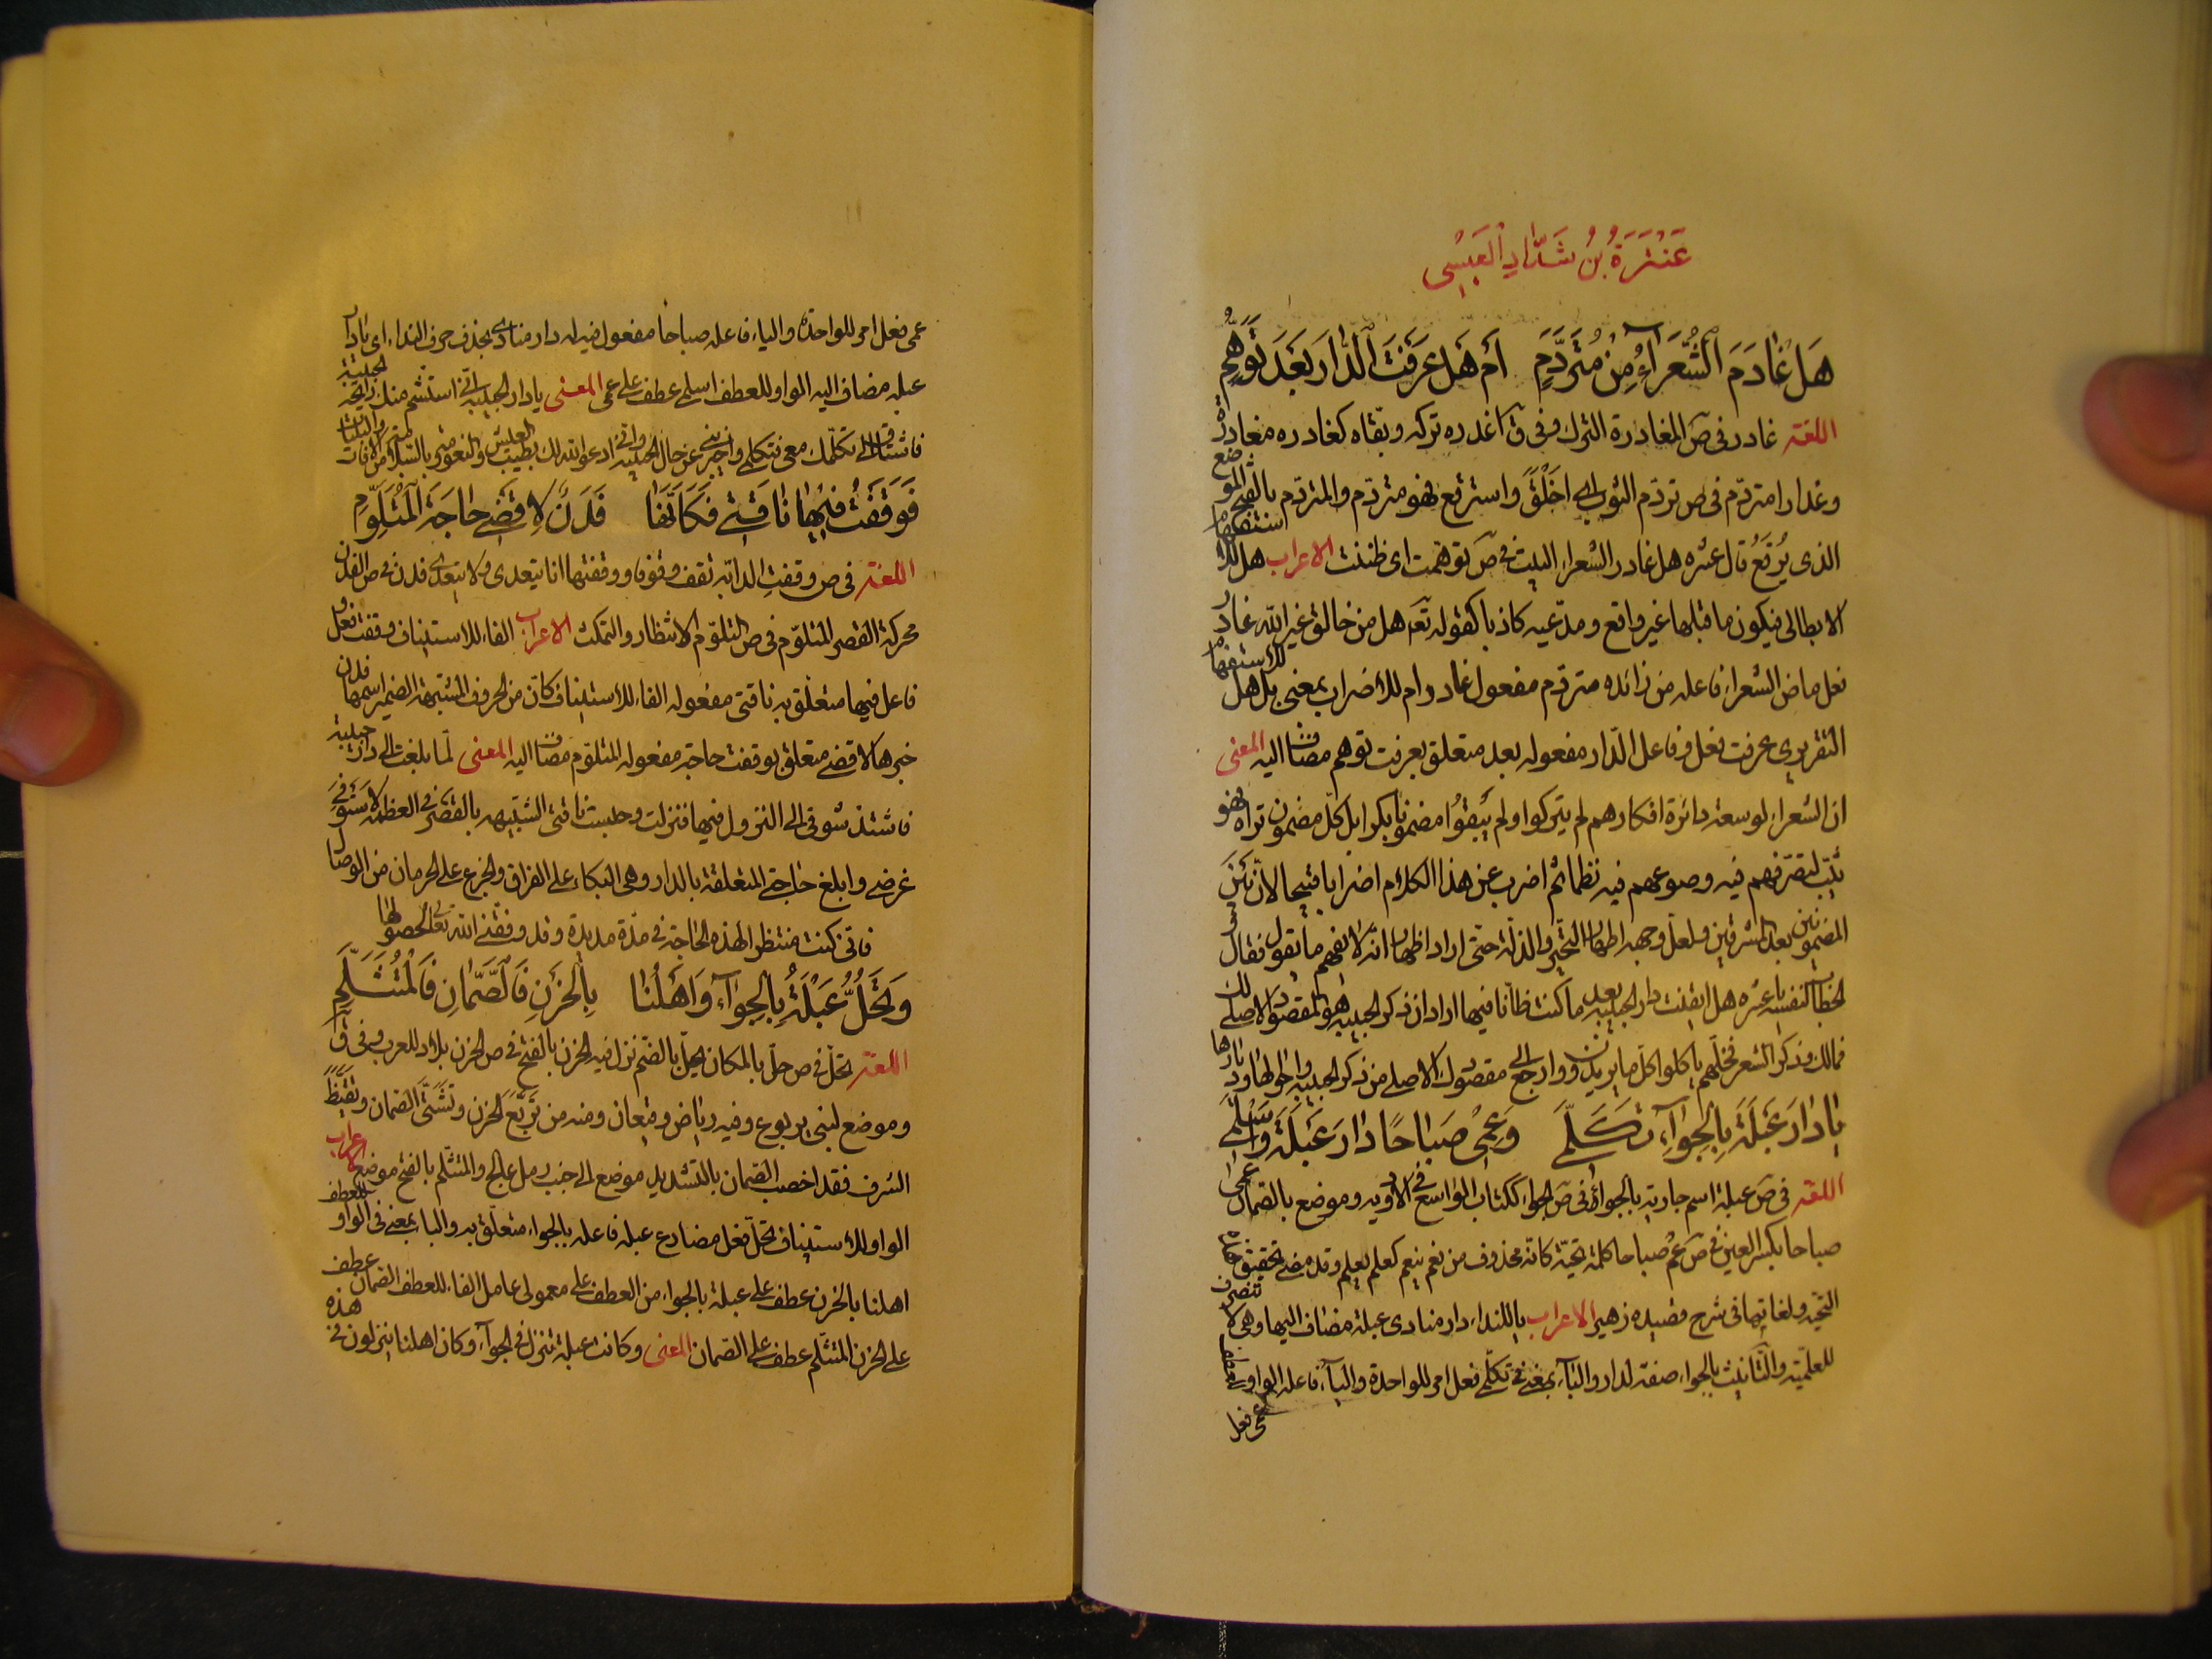 عَنْتَرَةُ بْنُ شَدَّادِ الْعَبْسِي
هَلْ غَادَرَ الشُّعَرَآءُ مِنْ مُتَرَدَّمٍ أَمْ هَلْ عَرَفْتَ الدَّارَ بَعْدَ تَوَهُّمِ
اللغة غادر فى ص المغادرة الترك وفى ق اغدره تركه وبقّاه كغادره مغادرة
وغدارا متردّم فى ص تردّم الثوب اى اخلق واسترقع فهو متردّم والمتردّم بالفتح الموضع
الذى يُرقَعُ قال عنتره هل غادر الشعراء البيت فى ص توهّمت اى ظننت الاعراب هل للاستفهام
الابطالى فيكون ما قبلها غير واقع ومدّعيه كاذبا كقوله تعَ هل من خالق غير الله غادر
فعل ماض الشعراء فاعله من زائده متردّم مفعول غادر وام للاضراب بمعنى بل هل للاستفهام
التقريرى عرفت فعل وفاعل الدّار مفعوله بعد متعلق بعرفت توهم مضاف اليه المعنى
ان الشعراء لوسعة دائرة افكارهم لم يتركوا ولم يُبقوُا مضمونا بكرا بل كلّ مضمون تراه فهو
ثيّب لتصرّفهم فيه وصوغهم فيه نظما ثم اضرب عن هذا الكلام اضرابا قبيحا لانّ بَيْنَ
المضمونين بعد المشرقين ولعلّ وجهه اظهار التحيّر والذلة حتّى اراد اظهار انّه لا يفهم ما يقول فقال
لخطاب لنفسه يا عنتره هل ايقنت دار الحبيبه بعد ما كنت ظانّا فيها اراد ان ذكر الحبيبه هو المقصود الاصلى لك
فمالك وذكر الشعر فخلّهم ياكلوا كلّ ما يريدون وارجع الى مقصودك الاصلى من ذكر الحبيبه واحوالها وديارها
يَا دَارَ عَبْلَةَ بِالْجِوَآءِ تَكَلَّمِى وَعِمِى صَبَاحًا دَارَ عَبْلَةَ وَاسْلَمِى
اللغة فى ص عبلة اسم جارية بالجواء فى ص الجواء ككتاب الواسع فى الاوديه وموضع بالصّمان عمى
صباحا بكسر العين فى ص عمْ صباحا كلمة تحيّة كانّه محذوف من نعم ينعم كعلم يعلم وقد مضى تحقيق هذه
التحيّه ولغاتها فى شرح قصيده زهير الاعراب يا للنداء دار منادى عبلة مضاف اليها وهى لا تنصرف
للعلميّة والتّانيث بالجواء صفة لدار والبآء بمعنى فى تكلّمى فعل امر للواحدة واليآء فاعله الواو للعطف
عمى فعل
عمى فعل امر للواحدة والياء فاعله صباحا مفعول فيه له دار منادى بحذف حرف النداء اى يا دار
عبله مضاف اليه الواو للعطف اسلمى عطف على عمى المعنى يا دار الحبيبه انى استشم منك رائحة الحبيبة
فاشتاق الى تكلّمك معى فتكلمى واخبرينى عن حال الحبيبه وانى ادعو الله لك بطيب العيش والنعومة بالسّلامة من الافات والبليّات
فَوَقَفْتُ فِيْهَا نَاقَتِى فَكَاَنَّهَا فَدَنٌ لِاَقْضِىَ حَاجَةَ الْمُتَلَوِّمِ
اللغة فى ص وقفت الدابّه تقف وقوفا ووقفتها انا يتعدى ولا يتعدى فدن فى ص الفدن
محركة القصر المتلوّم فى ص التلوّم الانتظار والتمكث الاعراب الفاء للاستيناف وقفت فعل و
فاعل فيها متعلّق به ناقتى مفعوله الفاء للاستيناف كانّ من الحروف المشبّهة الضمير اسمها فدن
خبرها لاقضى متعلق بوقفت حاجة مفعوله المتلوّم مضاف اليه المعنى لمّا بلغت الى دار حبيبة
فاشتدّ شوقى الى النزول فيها فنزلت وحبست ناقتى الشبّيهه بالقصر فى العظمة لاستوفى
غرضى وابلغ حاجتى المتعلقة بالدار وهى البكاء على الفراق والجزع على الحرمان من الوصال
فانّى كنت منتظرا لهذه الحاجة فى مدّة مديدة وقد وفّقنى الله تعالى لحصولها
وَتَحُلُّ عَبْلَةُ بِالْجِوَآءِ وَاَهْلُنَا بِالْحَزْنِ فَالصَّمَّانِ فَالْمُتَثَلَّمِ
اللغة تحلّ فى ص حلّ بالمكان يحلّ بالضم نزل فيه الحزن بالفتح فى ص الحزن بلاد للعرب وفى ق
وموضع لبنى يربوع وفيه رياض وقيعان ومنه من تربّع الحزن وتشتّى الصّمان وتقيّظ
الشرف فقد اخصب الصّمان بالتشديد موضع الى جنب رمل عالج والمتثلّم بالفتح موضع الاعراب
الواو للاستيناف تحلّ فعل مضارع عبله فاعله بالجواء متعلّق به والباء بمعنى فى الواو للعطف
اهلنا بالحزن عطف على عبلة بالجواء من العطف على معمولى عامل الفاء للعطف الصّمان عطف
على الحزن المتثلّم عطف على الصّمان المعنى وكانت عبلة تنزل فى الجوآء وكان اهلنا ينزلون فى هذه